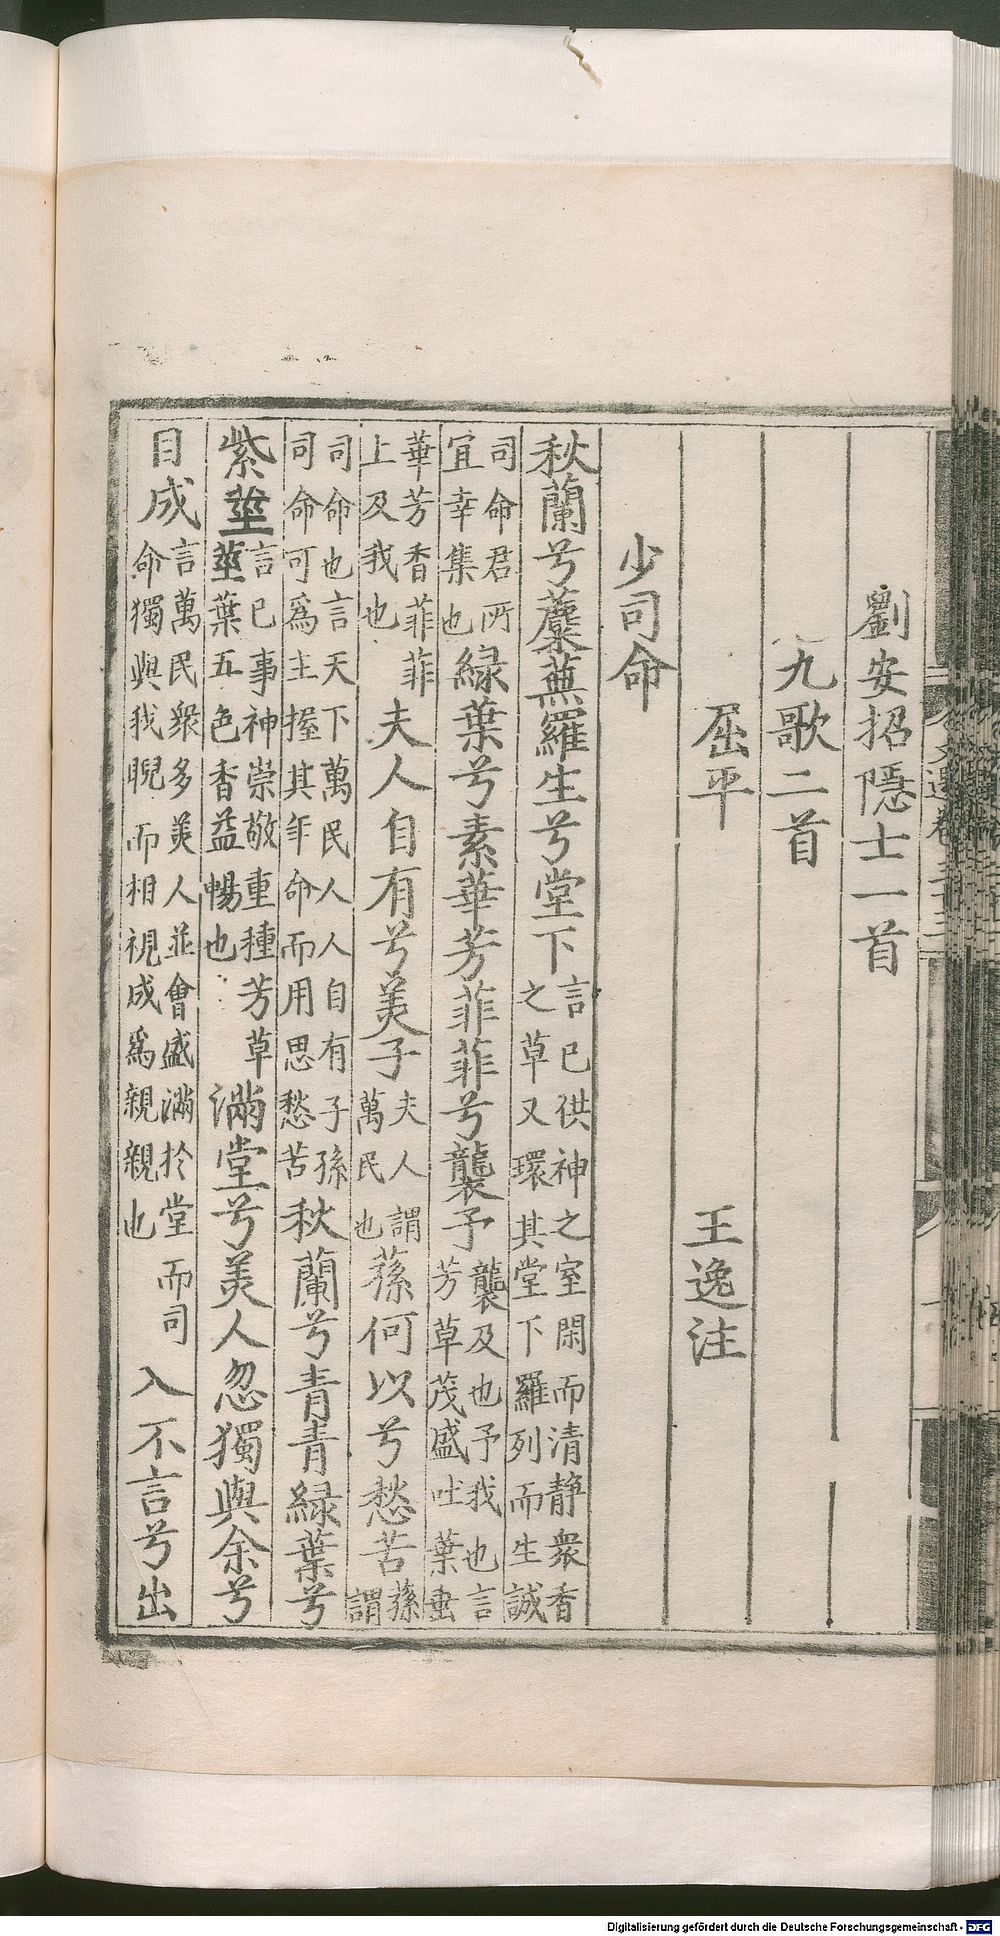 劉安招隱士一首
九歌二首
屈平 王逸注
少司命
秋蘭兮蘪蕪羅生兮堂下言己供神之室閑而清静衆香之草又環其堂下羅列而生誠
司命君所宜幸集也緑葉兮素華芳菲菲兮襲予襲及也予我也言芳草茂盛吐葉垂
華芳香菲菲上及我也夫人自有兮美子夫人謂萬民也蓀何以兮愁苦蓀謂
司命也言天下萬民人人自有子孫司命可爲主握其年命而用思愁苦秋蘭兮青青緑葉兮
紫莖言已事神崇敬重種芳草莖葉五色香益暢也滿堂兮美人忽獨與余兮
目成言萬民衆多美人並會盛滿於堂而司命獨與我睨而相視成爲親親也入不言兮出
Digitalisierung gefördert durch die Deutsche Forschungsgemeinschaft - DFG